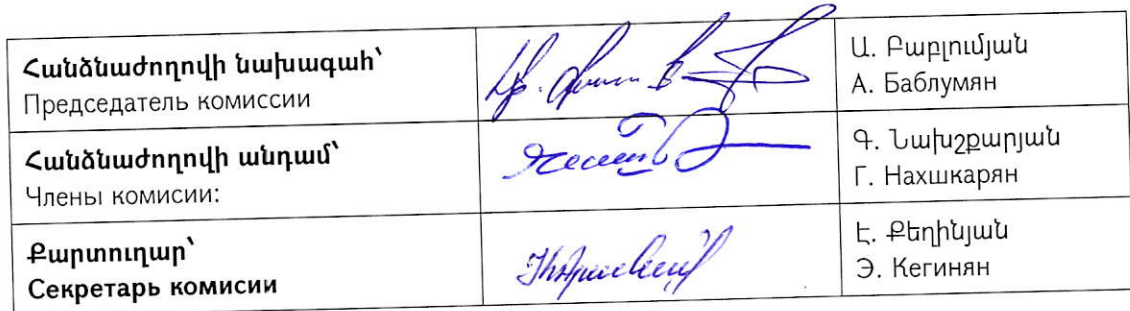 Հանձնաժողովի նախագահ՝
Председатель комиссии
Ա. Բաբլումյան
А. Баблумян
Հանձնաժողովի անդամ՝
Члены комисии:
Գ. Նախշքարյան
Г. Нахшкарян
Քարտուղար՝
Секретарь комисии
Է. Քեղինյան
Э. Кегинян